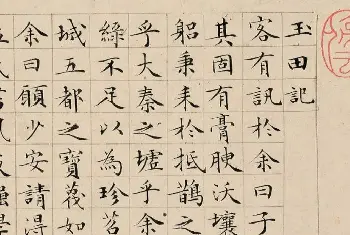 玉田記
客有訊於余曰子
其固有膏腴沃壤
躬秉耒於抵鵲之
乎大秦之墟乎余
綠不足以為珍苕
城五都之寶蔑如
余曰願少安請得